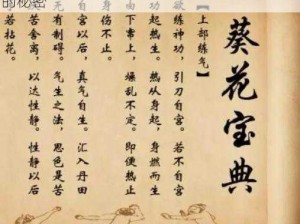 的秘密
葵花宝典
【上部练气】
欲练神功，引刀自宫。若不自宫
燥热生。热从身起，身燃而生
由下窜上，燥乱不定。即便热止
身伤不止。
自宫以后，真气自生。汇入丹田
无有制碍。气生之法，思色是苦
苦舍离，以达性静。性静以后
若拈花。